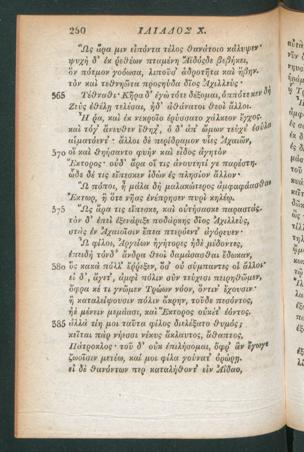 250 ΙΛΙΑΔΟΣ Χ.
Ὣς ἄρα μιν εἰπόντα τέλος θανάτοιο κάλυψεν·
ψυχὴ δ' ἐκ ῥεθέων πταμένη Ἄϊδόσδε βεβήκει,
ὃν πότμον γοόωσα, λιποῦσ' ἁδροτῆτα καὶ ἥβην.
τὸν καὶ τεθνηῶτα προσηύδα δῖος Ἀχιλλεύς·
565 Τέθναθι· Κῆρα δ' ἐγὼ τότε δέξομαι, ὁππότεκεν δὴ
Ζεὺς ἐθέλῃ τελέσαι, ἠδ' ἀθάνατοι θεοὶ ἄλλοι.
Ἦ ῥα, καὶ ἐκ νεκροῖο ἐρύσσατο χάλκεον ἔγχος·
καὶ τόγ' ἄνευθεν ἔθηχ', ὁ δ' ἀπ' ὤμων τεύχε' ἐσύλα
αἱματόεντ'· ἄλλοι δὲ περίδραμον υἷες Ἀχαιῶν,
570 οἳ καὶ θηήσαντο φυὴν καὶ εἶδος ἀγητὸν
Ἕκτορος· οὐδ' ἄρα οἵ τις ἀνουτητί γε παρέστη.
ὧδε δέ τις εἴπεσκεν ἰδὼν ἐς πλησίον ἄλλον·
Ὢ πόποι, ἦ μάλα δὴ μαλακώτερος ἀμφαφάασθαι
Ἕκτωρ, ἢ ὅτε νῆας ἐνέπρησεν πυρὶ κηλέῳ.
575 Ὣς ἄρα τις εἴπεσκε, καὶ οὐτήσασκε παραστάς.
τὸν δ' ἐπεὶ ἐξενάριξε ποδάρκης δῖος Ἀχιλλεύς,
στὰς ἐν Ἀχαιοῖσιν ἔπεα πτερόεντ' ἀγόρευεν·
Ὦ φίλοι, Ἀργείων ἡγήτορες ἠδὲ μέδοντες,
ἐπειδὴ τόνδ' ἄνδρα θεοὶ δαμάσασθαι ἔδωκαν,
580 ὃς κακὰ πόλλ' ἔρρεξεν, ὅσ' οὐ σύμπαντες οἱ ἄλλοι·
εἰ δ', ἄγετ', ἀμφὶ πόλιν σὺν τεύχεσι πειρηθῶμεν,
ὄφρα κέ τι γνῶμεν Τρώων νόον, ὅντιν' ἔχουσιν·
ἢ καταλείψουσιν πόλιν ἄκρην, τοῦδε πεσόντος,
ἠὲ μένειν μεμάασι, καὶ Ἕκτορος οὐκέτ' ἐόντος.
585 ἀλλὰ τίη μοι ταῦτα φίλος διελέξατο θυμός;
κεῖται πὰρ νήεσσι νέκυς ἄκλαυτος, ἄθαπτος,
Πάτροκλος· τοῦ δ' οὐκ ἐπιλήσομαι, ὄφρ' ἂν ἔγωγε
ζωοῖσιν μετέω, καί μοι φίλα γούνατ' ὀρώρῃ.
εἰ δὲ θανόντων περ καταλήθοντ' εἰν Ἀΐδαο,